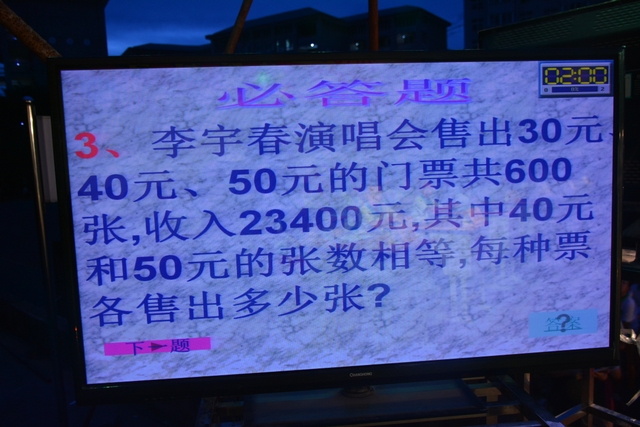 必答题
02:00
3、李宇春演唱会售出30元、
40元、50元的门票共600
张,收入23400元,其中40元
和50元的张数相等,每种票
各售出多少张?
下一题